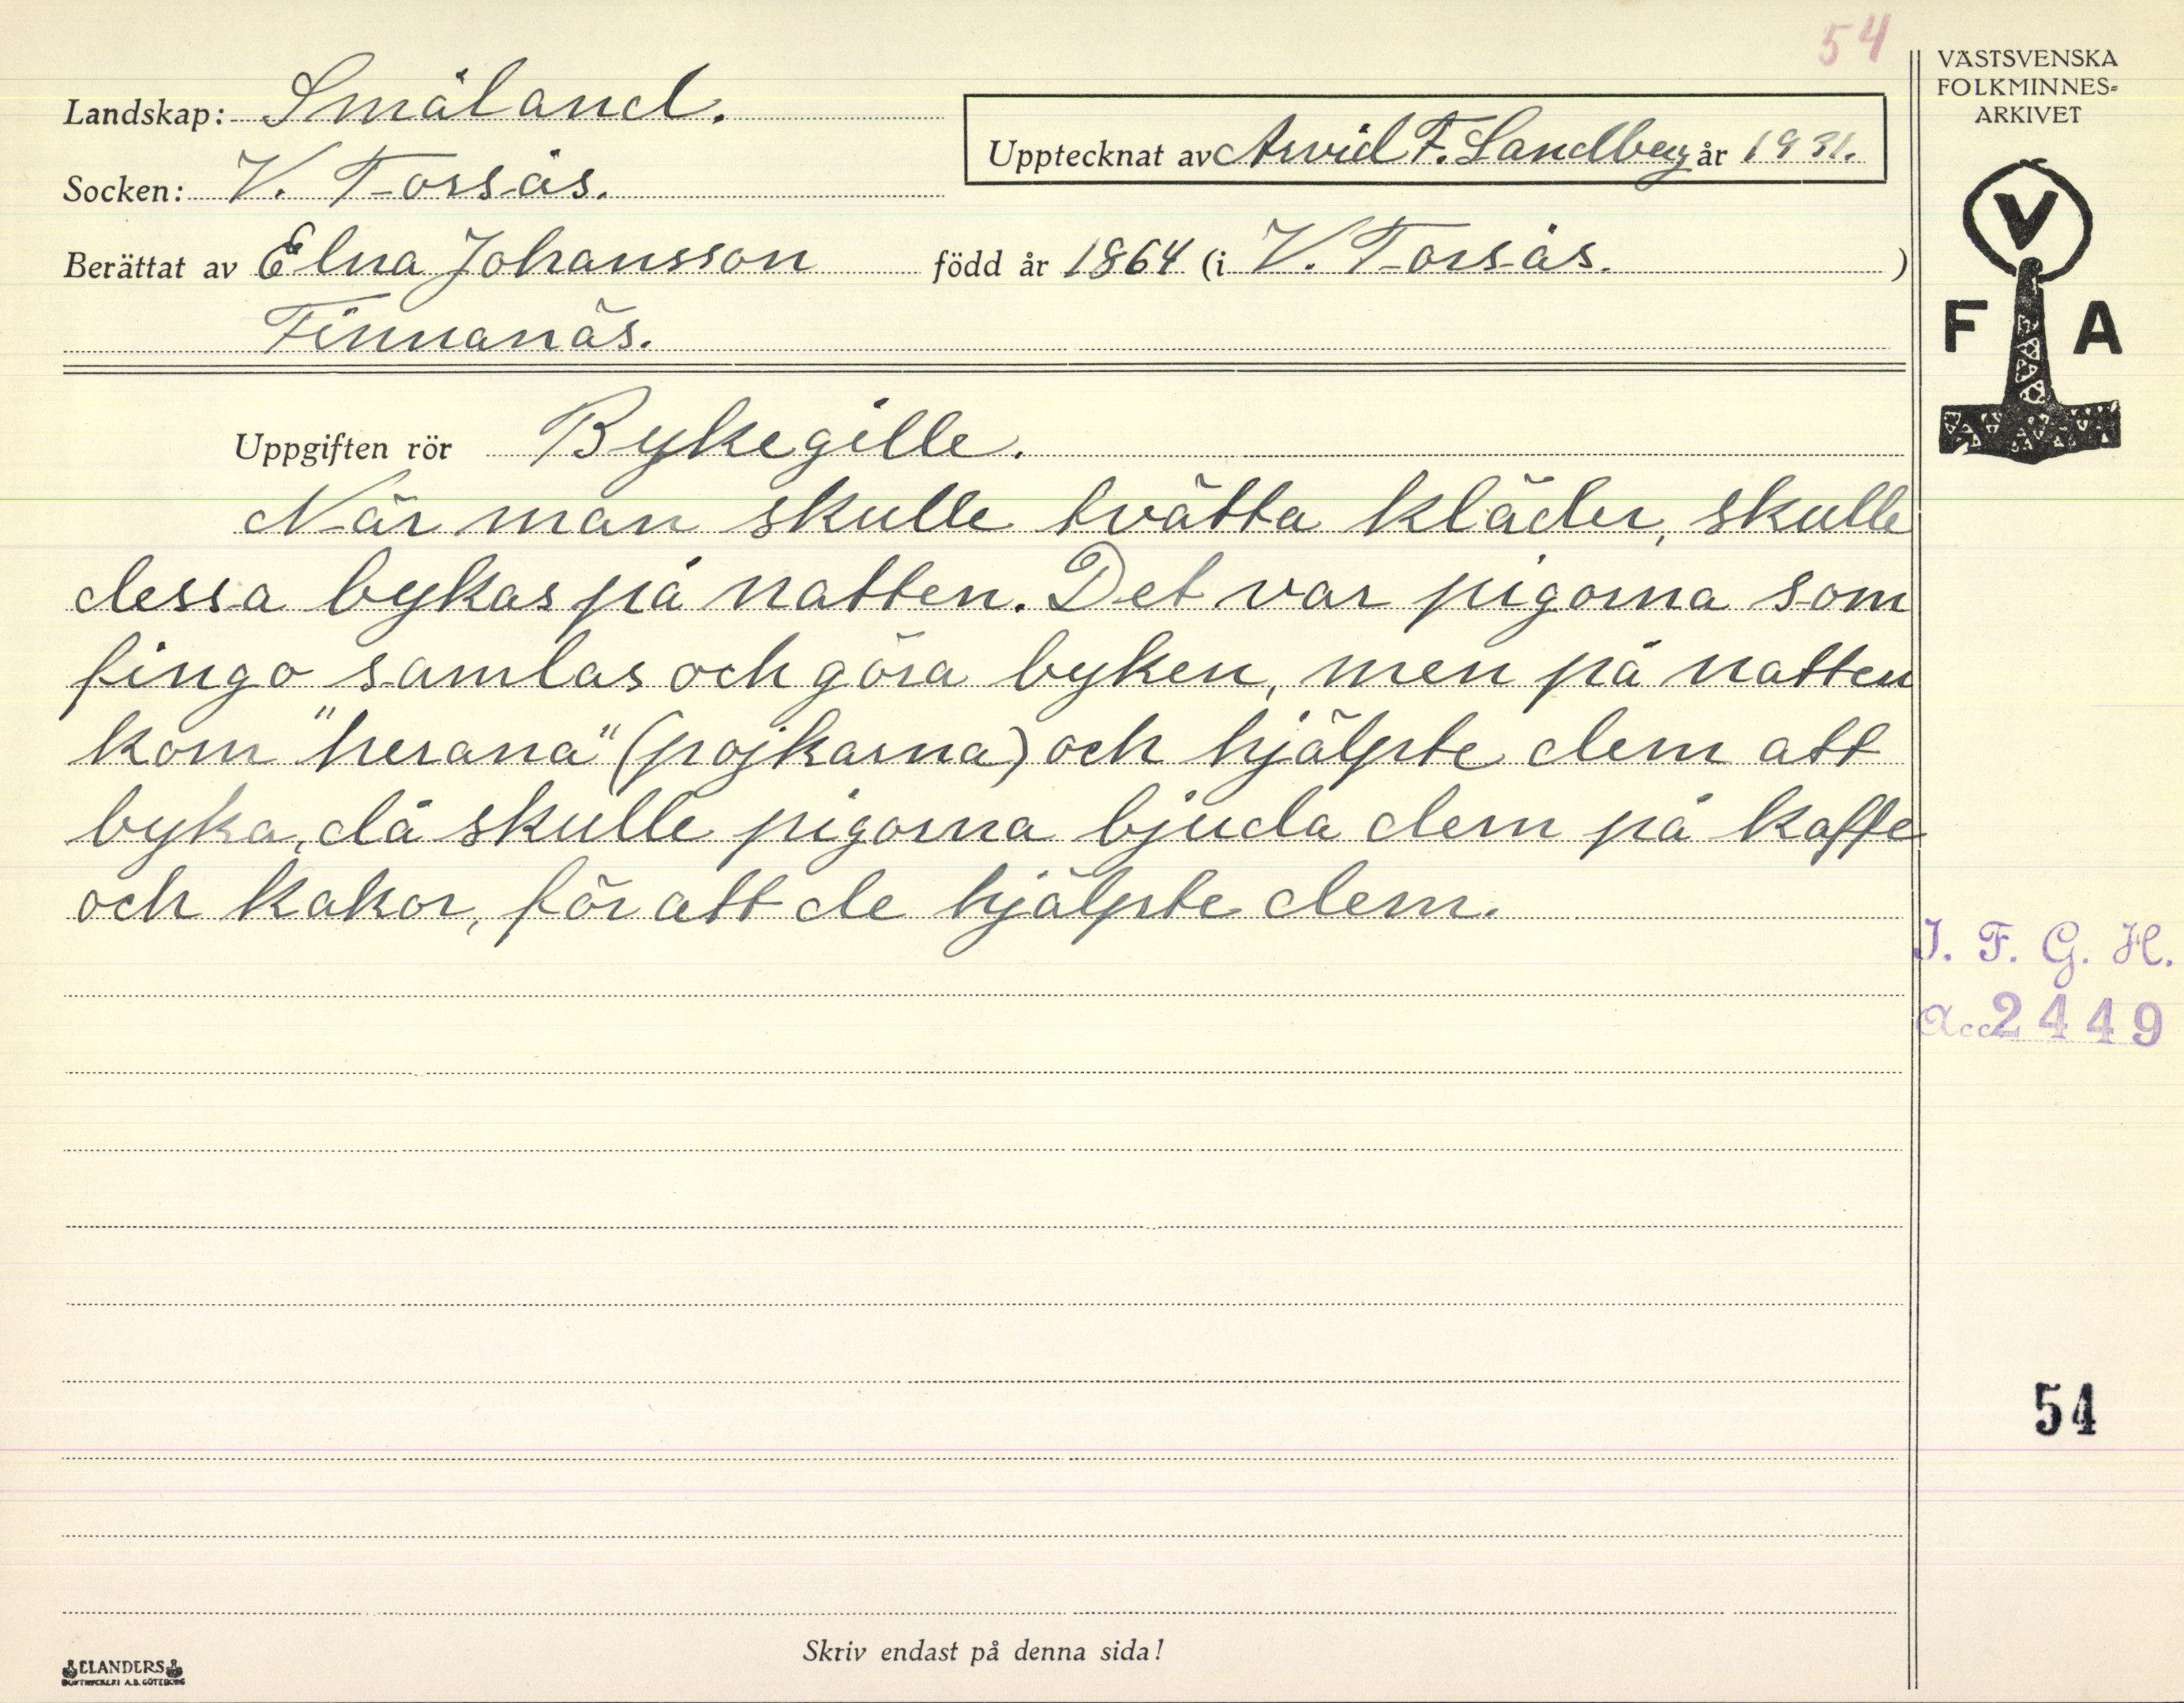 54
VÄSTSVENSKA
FOLKMINNES-
ARKIVET
Landskap: Småland.
Upptecknat av Arvid F. Sandberg år 1931.
Socken: V. Torsås.
Berättat av Elna Johansson född år 1864 (i V. Torsås. )
Finnanäs.
V
F A
Uppgiften rör Bykegille.
När man skulle tvätta kläder, skulle
dessa bykas på natten. Det var pigorna som
fingo samlas och göra byken, men på natten
kom "herana" (pojkarna) och hjälpte dem att
byka, då skulle pigorna bjuda dem på kaffe
och kakor, för att de hjälpte dem.
I. F. G. H.
Acc 2449
54
Skriv endast på denna sida!
ELANDERS
BOKTRYCKERI A.B. GÖTEBORG